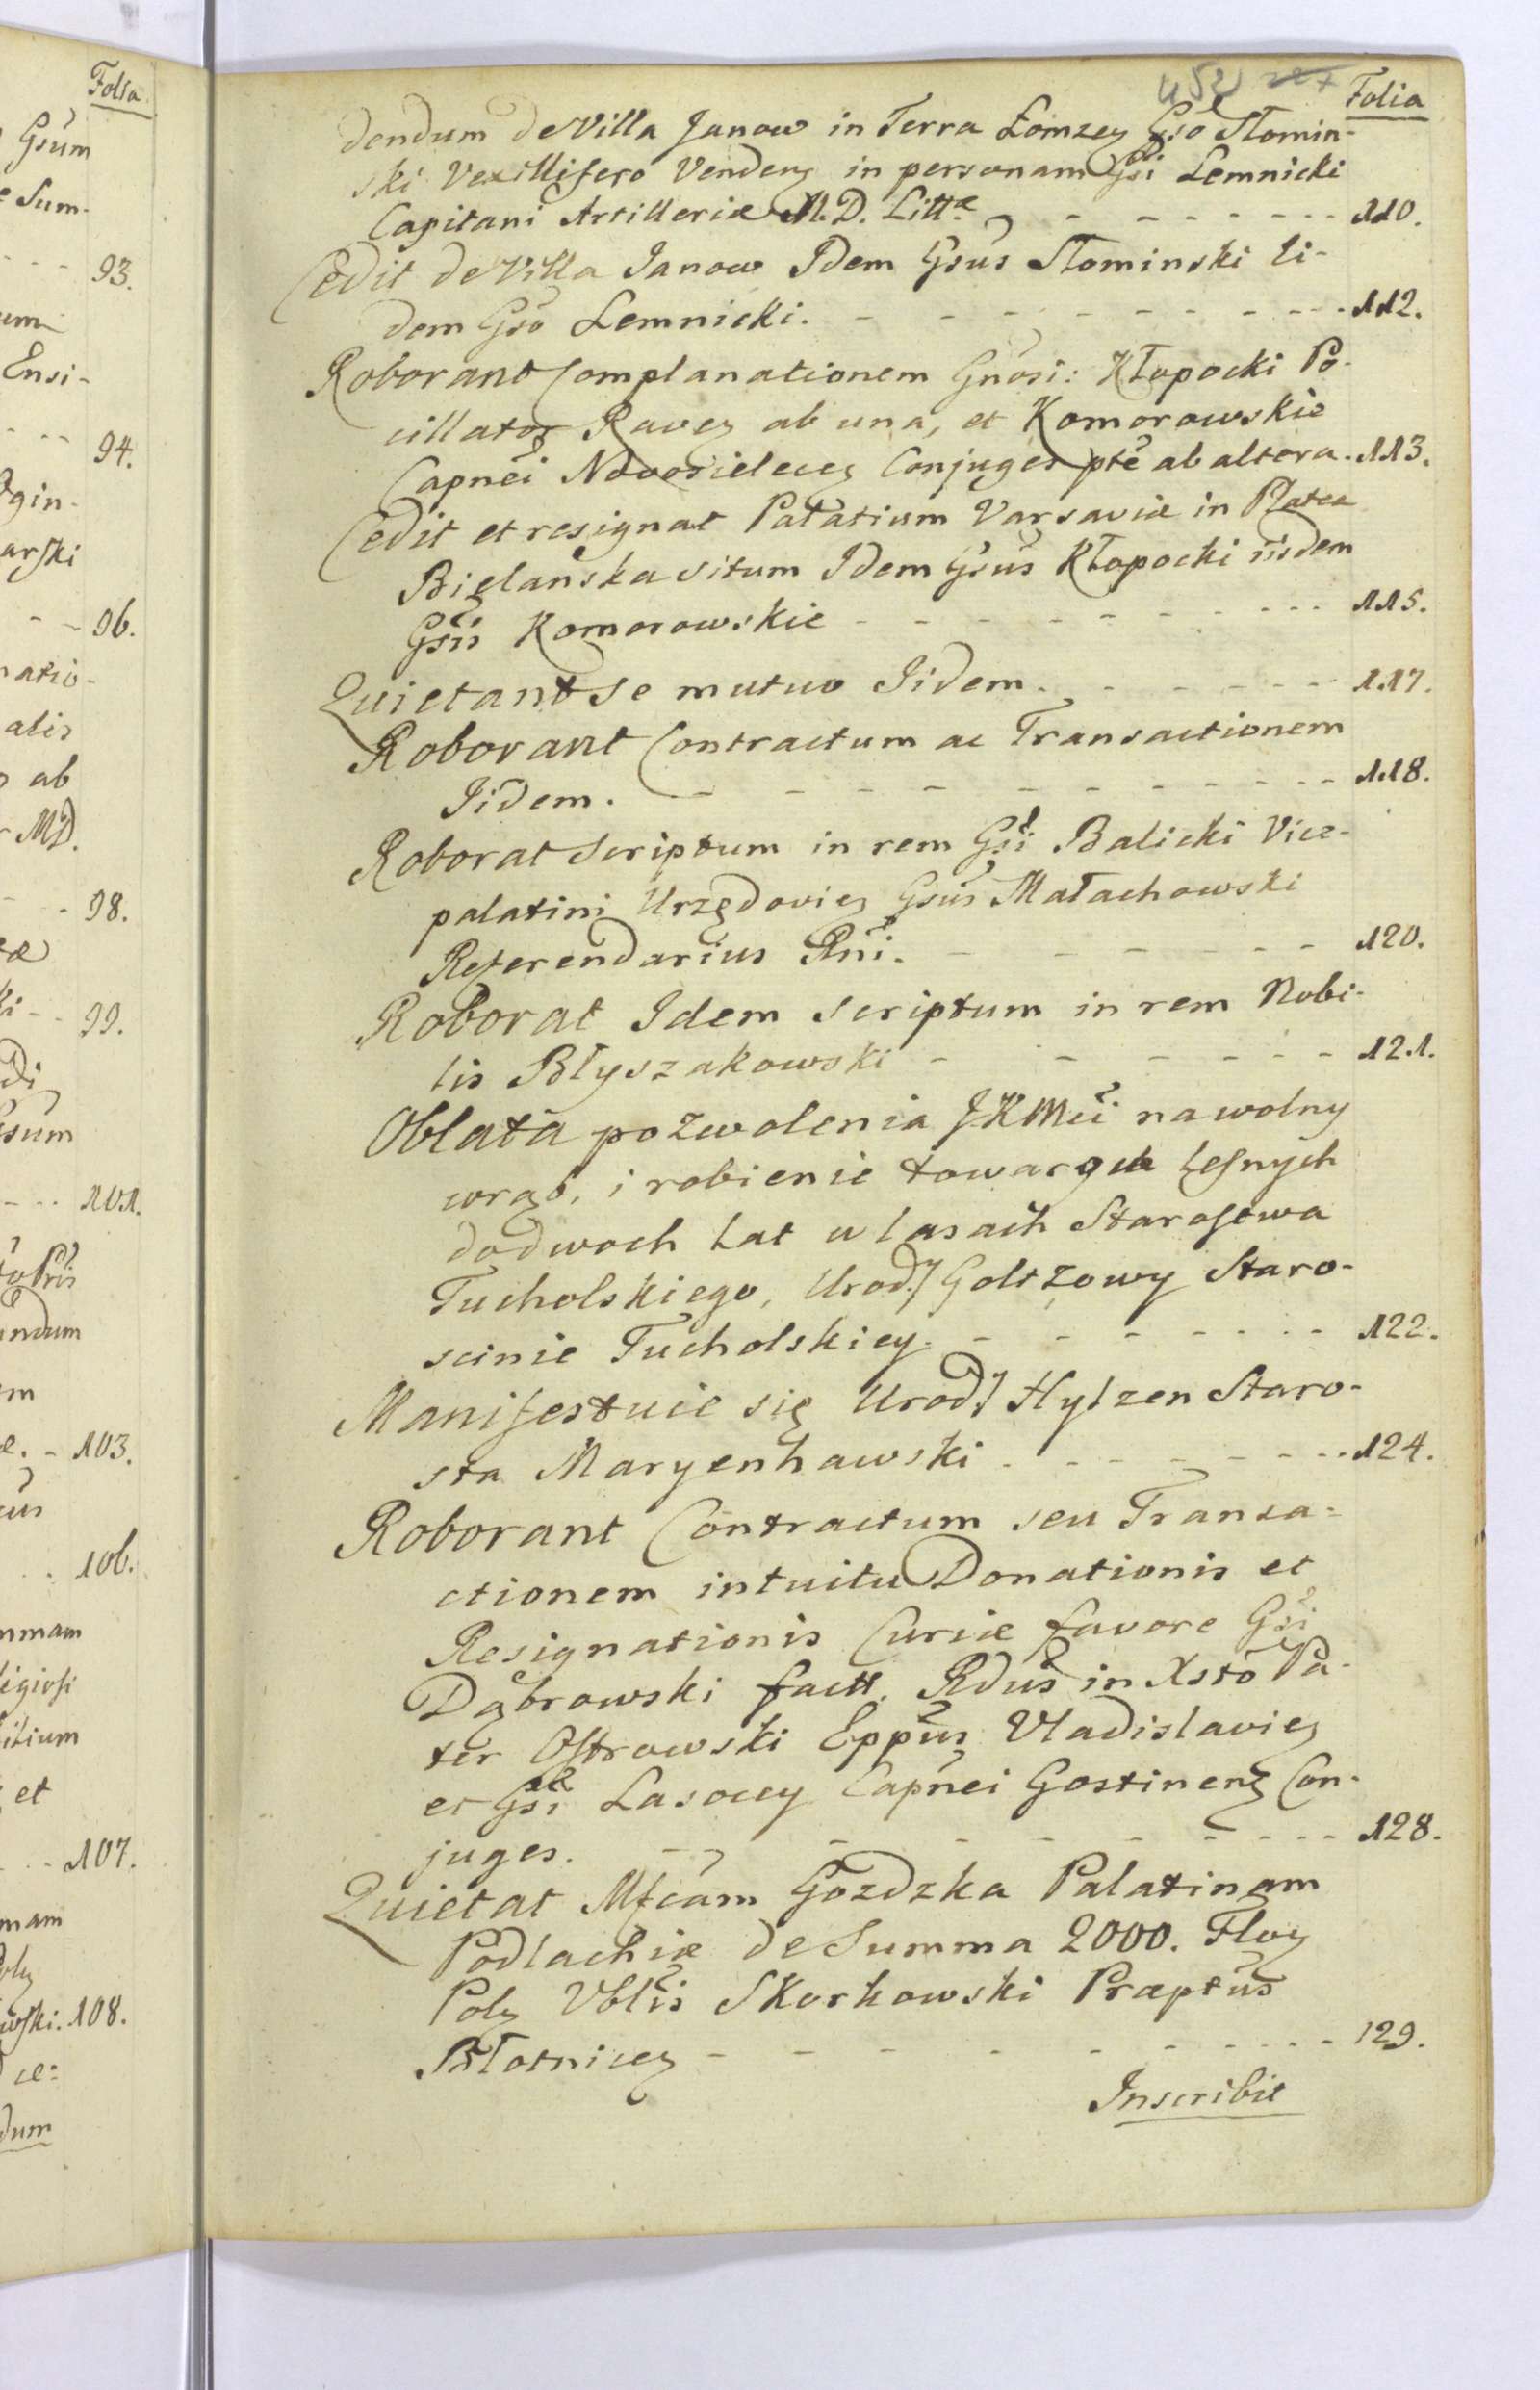 Folia
dendum de Villa Janow in Terra Łomzeÿ Gso Słomin-
ski Vexillifero Venden in personam Gsi Lemnicki
Capitani Artilleriæ M. D. Littæ - - - - - - - 110.
Cedit de Villa Janow Idem Gsus Słominski Ei-
dem Gso Lemnicki. - - - - - - - - - 112.
Roborant Complanationem Gnosi: Kłopocki Po-
cillator Raveÿ ab una, et Komorowskie
Capnei Nowosieleceÿ Conjuges pte ab altera. 113.
Cedit et resignat Palatium Varsaviæ in Platea
Bielańska situm Idem Gsus Kłopocki iisdem
Gsis Komorowskie - - - - - - - - - 115.
Quietant se mutuo Iidem. - - - - - - 117.
Roborant Contractum ac Transactionem
Iidem. - - - - - - - - - - 118.
Roborat Scriptum in rem Gsi Balicki Vice-
palatini Urzędovieÿ Gsus Małachowski
Referendarius Rni. - - - - - - 120.
Roborat Idem scriptum in rem Nobi-
lis Błyszakowski - - - - - - 121.
Oblata pozwolenia JKMci na wolny
wrąb, i robienie towarow leśnych
do dwoch lat w lasach Starostwa
Tucholskiego, Urod: Goltzowy Staro-
scinie Tucholskiey. - - - - - - - 122.
Manifestuie się Urod: Hylzen Staro-
sta Maryenhawski - - - - - - - 124.
Roborant Contractum seu Transa=
ctionem intuitu Donationis et
Resignationis Curiæ favore Gsi
Dąbrowski factt. Rdus in Xsto Pa-
ter Ostrowski Eppus Vladislavieÿ
et Gsi Lasoccy Capnei Gostinen Con-
juges. - - - - - - - - - 128.
Quietat Mfcam Gozdzka Palatinam
Podlachiæ de Summa 2000. Flor
Pol Vblis Skorkowski Præptus
Błotniceÿ - - - - - - - - - 129.
Inscribit
Folia
Gsum
Sum-
93.
Ensi-
94.
96.
natio-
alis
ab
MD.
98.
99.
101.
103.
106.
mmam
et
107.
108.